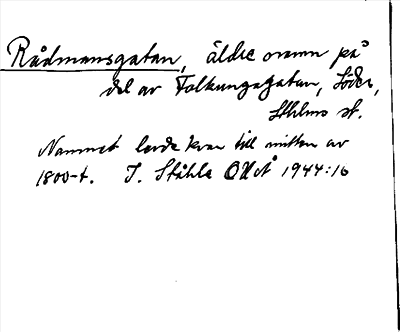 Rådmansgatan, äldre onamn på
del av Folkungagatan, Söder,
Sthlms st.
Namnet levde kvar till mitten av
1800-t. I. Ståhle 1944:16